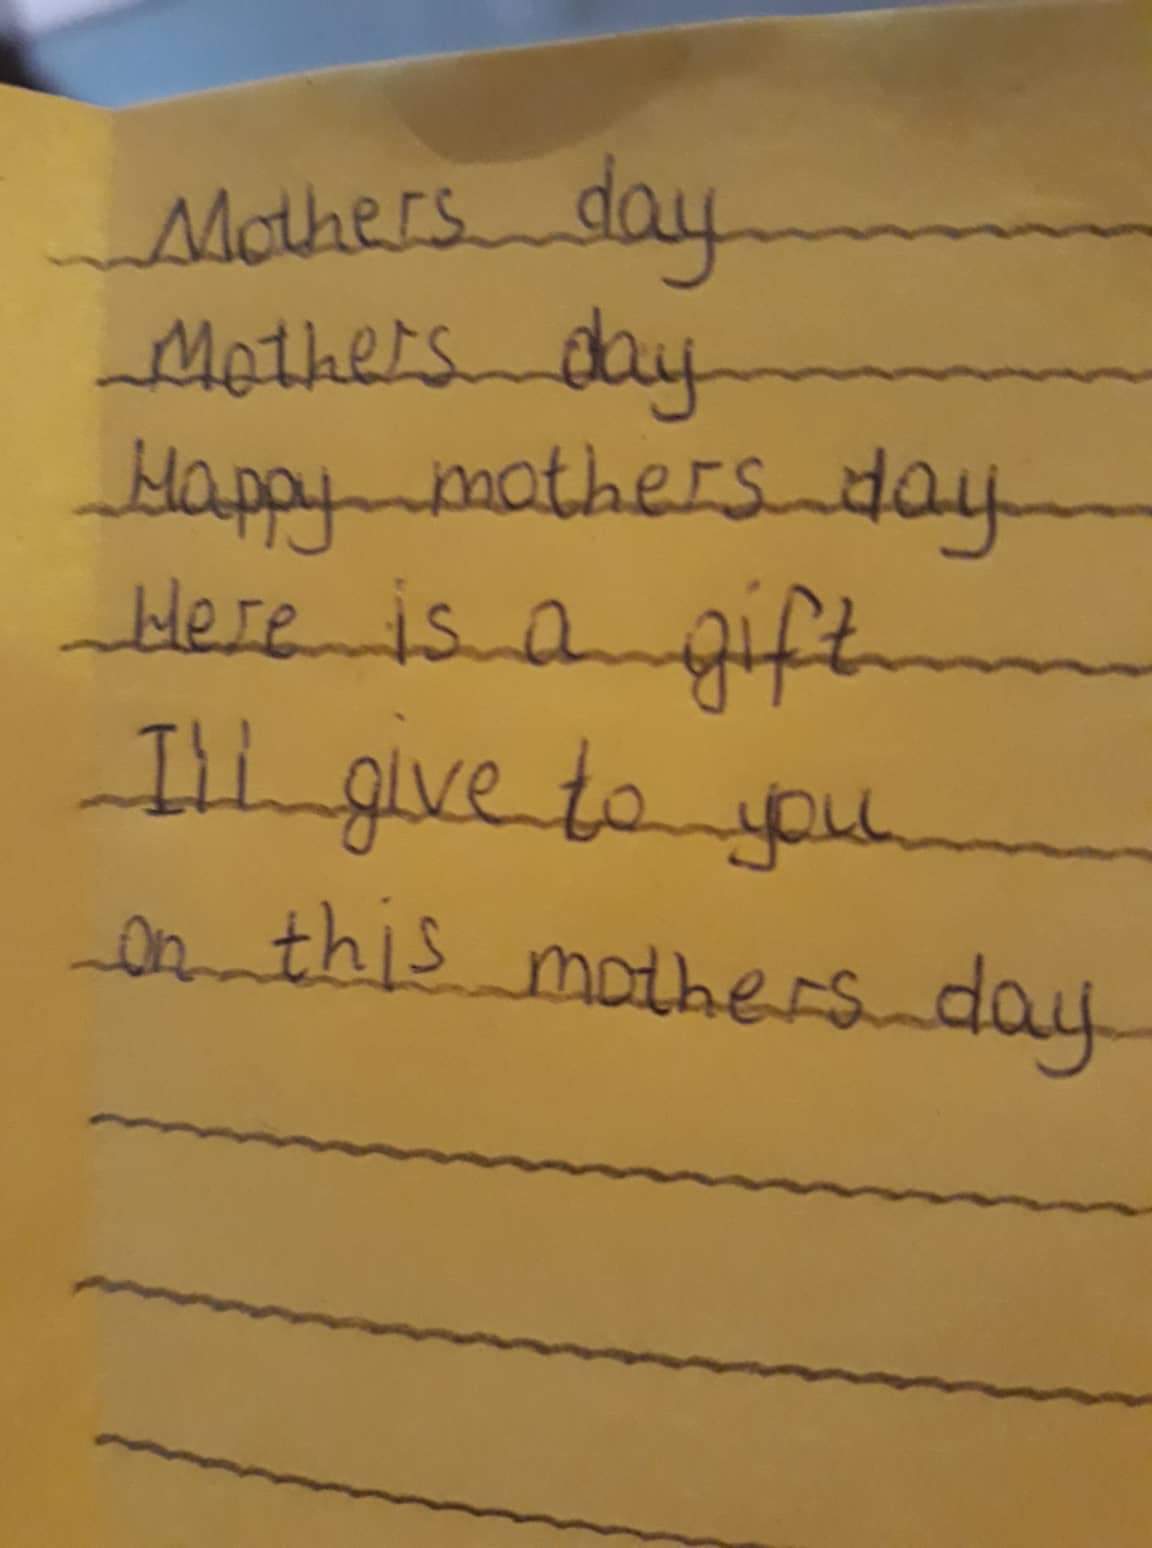 Mothers day
Mothers day
Happy mothers day
Here is a gift
I'll give to you
on this mothers day